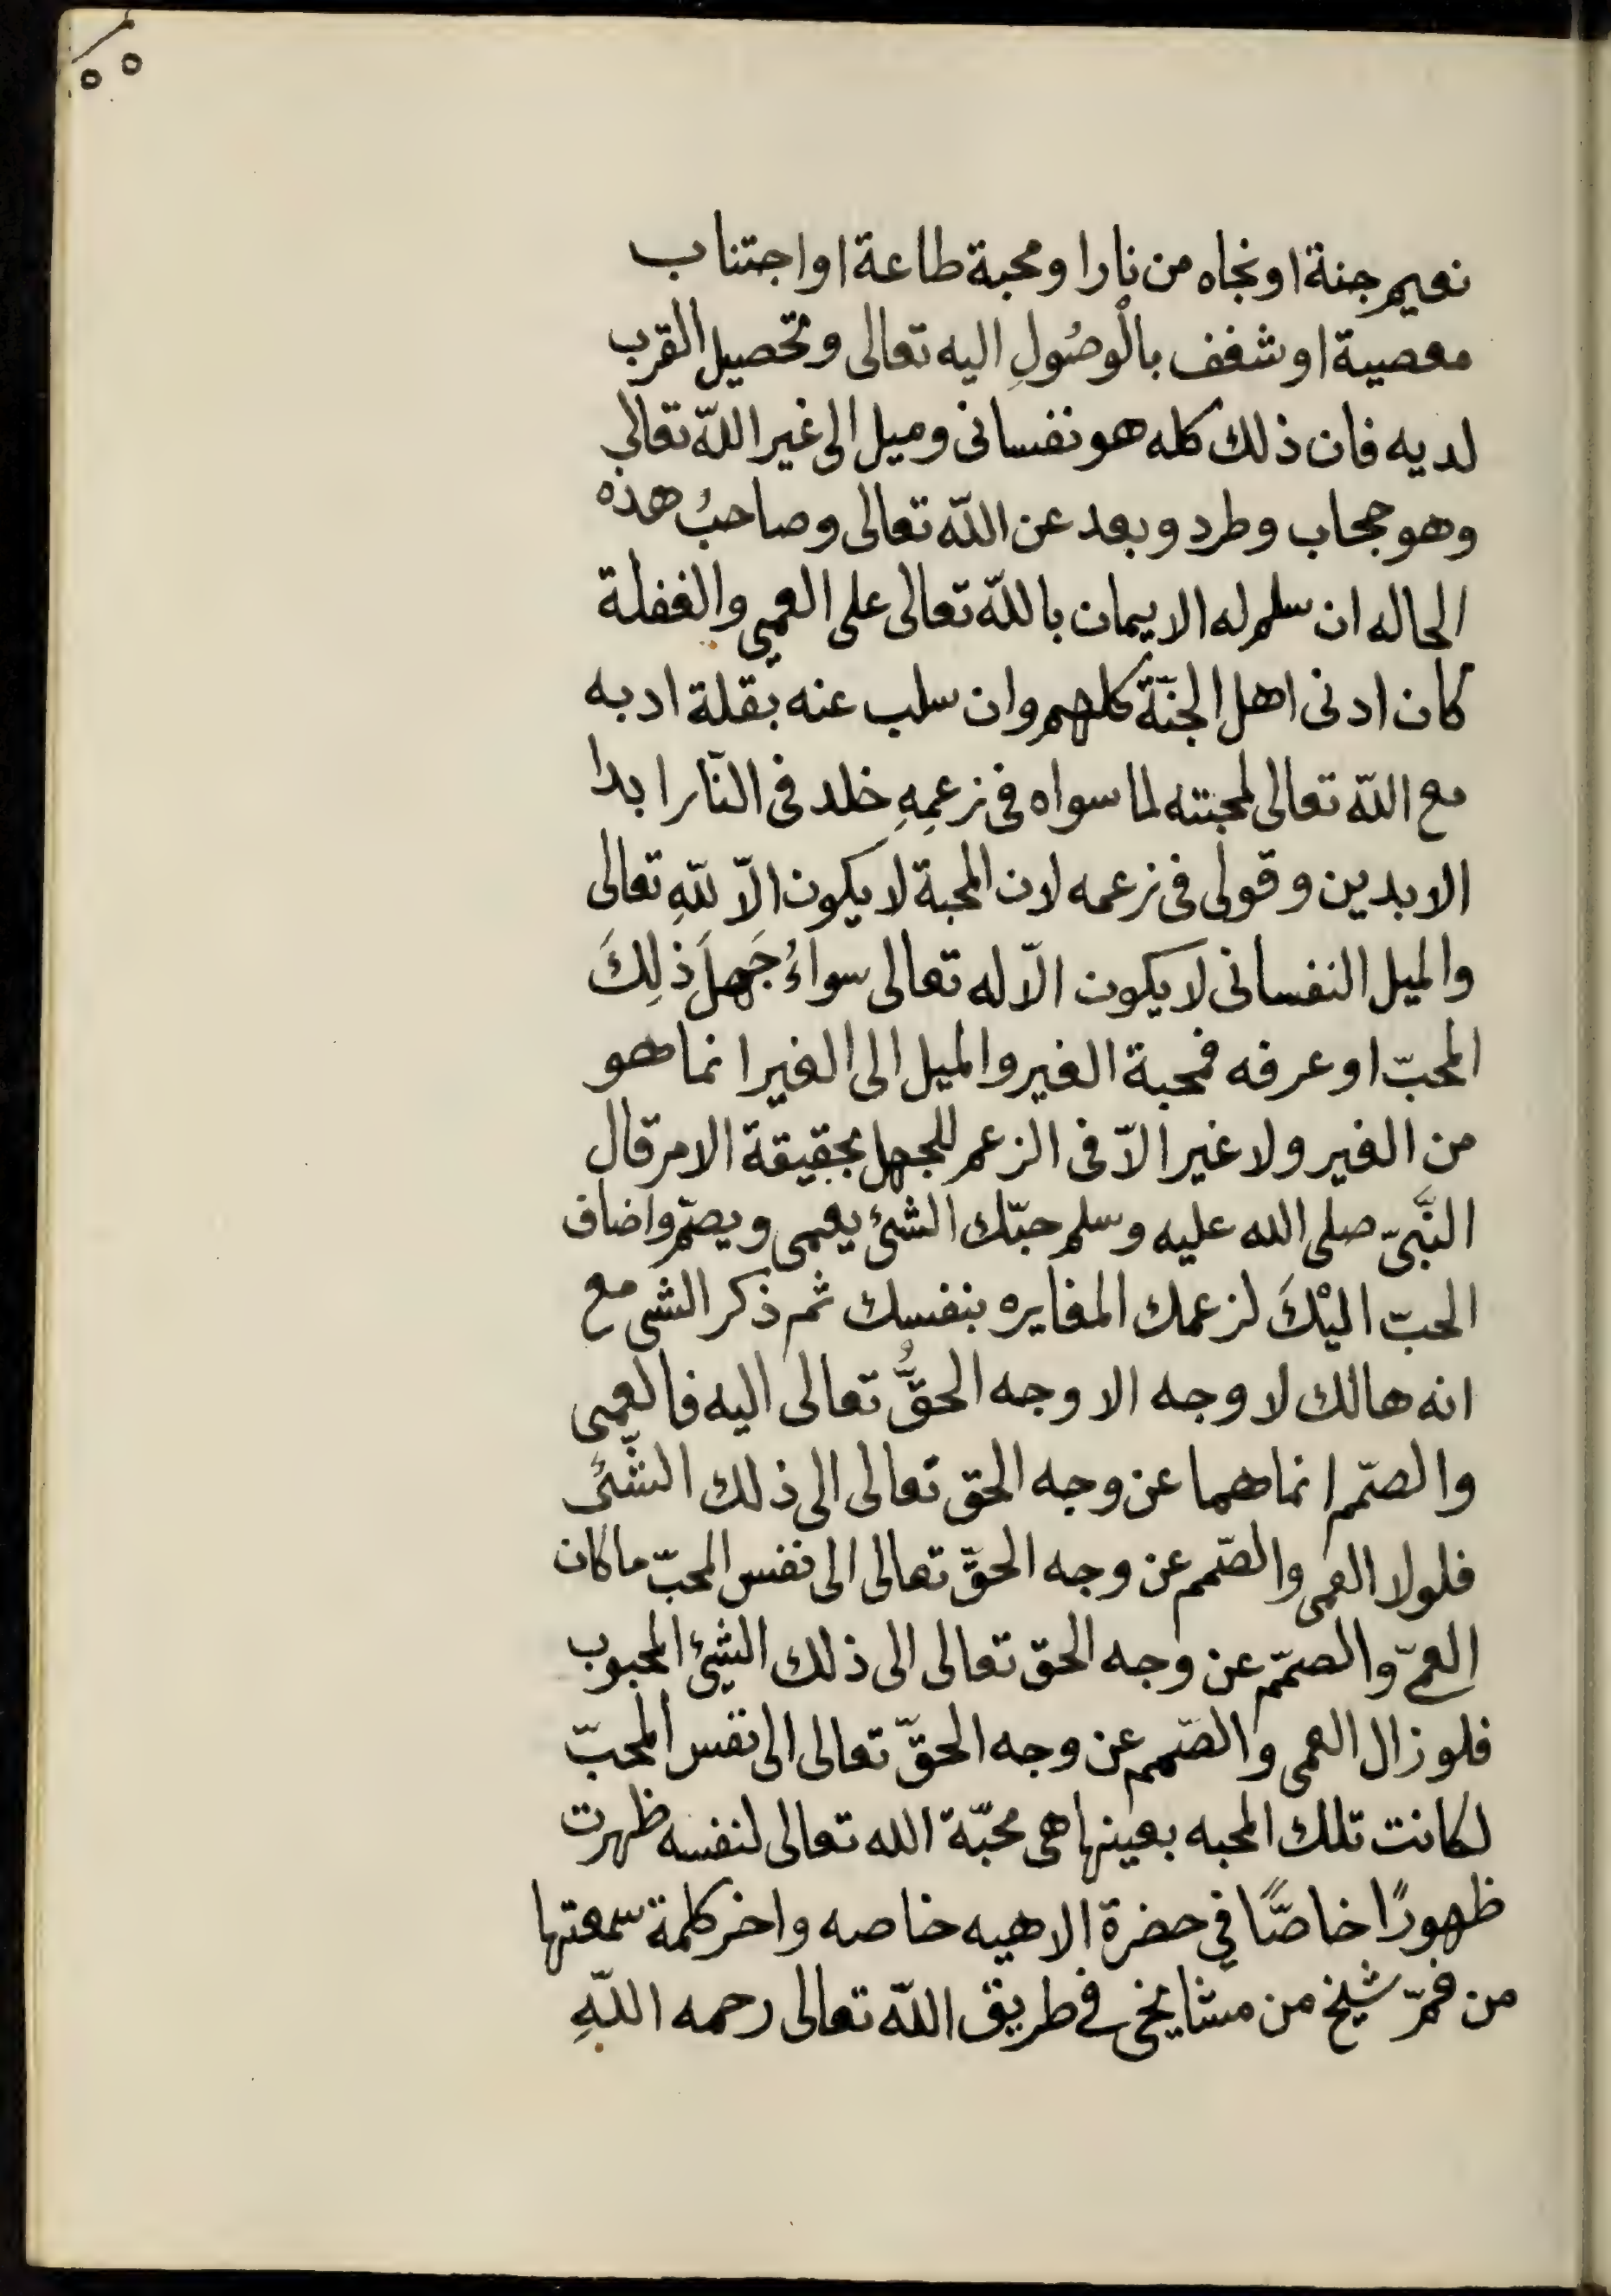 ٥٥
نعيم جنة او نجاه من نار او محبة طاعة او اجتناب
معصية او شغف بالْوصُولِ اليه تعالى وتحصيل القرب
لديه فان ذلك كله هو نفسانى وميل الى غير اللّه تعالى
وهو حجاب وطرد وبعد عن اللّه تعالى وصاحبُ هذه
الحاله ان سلم له الايمان باللّه تعالى على العمى والغفلة
كان ادنى اهل الجنّة كلهم وان سلب عنه بقلة ادبه
مع اللّه تعالى لمحبته لما سواه فى زعمِهِ خلد فى النّار ابدا
الابدين وقولى فى زعمه لان المحبة لا يكون الّا للّهِ تعالى
والميل النفسانى لا يكون الّا له تعالى سواءُ جَهلَ ذلِكَ
المحبّ او عرفه فمحبة الغير والميل الى الغير انما هو
من الغير ولا غير الّا فى الزعم للجهل بحقيقة الامر قال
النَّبىّ صلى الله عليه وسلم حبّك الشئ يعمى ويصمّ واضاف
الحبّ اليْكَ لزعمك المغايره بنفسك ثم ذكر الشى مع
انه هالك لا وجه الا وجه الحقُّ تعالى اليه فالعمى
والصّمم انما هما عن وجه الحق تعالى الى ذلك الشّئ
فلولا العمى والصّمم عن وجه الحقّ تعالى الى نفس المحبّ ما كان
العمىّ والصمّم عن وجه الحق تعالى الى ذلك الشئ المحبوب
فلو زال العمى والصّمم عن وجه الحقّ تعالى الى نفس المحبّ
لكانت تلك المحبه بعينها هى محبّة الله تعالى لنفسه ظهرت
ظهورًا خاصًّا في حضرة الاهيه خاصه واخر كلمة سمعتها
من فمّ شيخ من مشايخى فى طريق اللّه تعالى رحمه اللّهِ